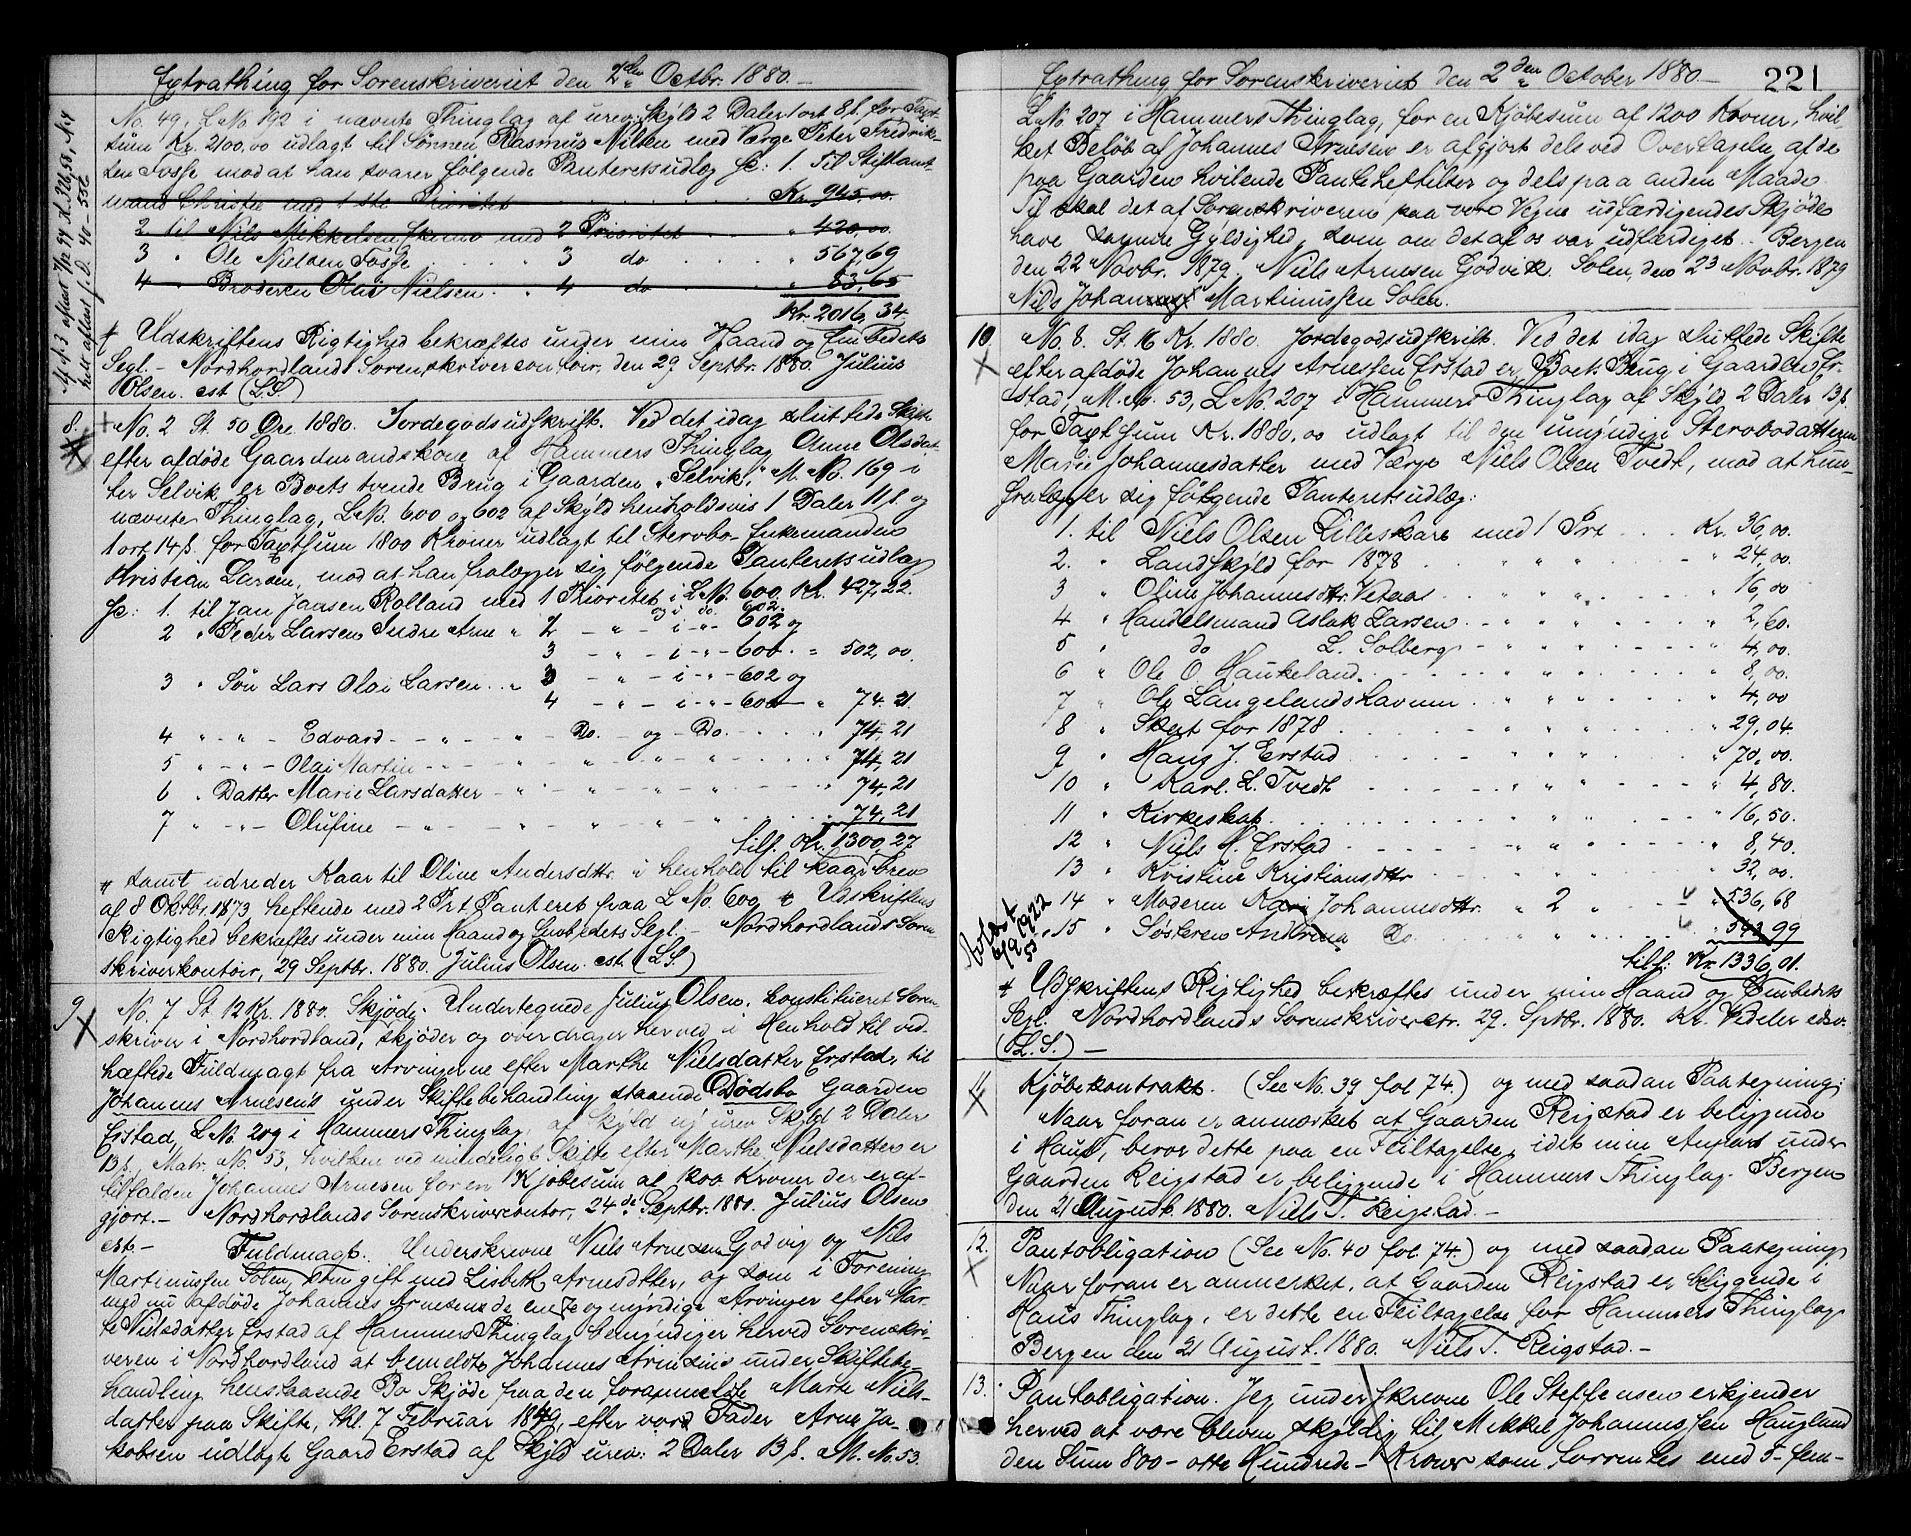 Extrathing for Sorenskriveriet den 2den Octbr. 1880.
No. 49, L No. 192 i nævnte Thinglag af urev. Skyld 2 Daler 1 ort 8 ß. for Taxt-
sum Kr. 2100,00 udlagt til Sønnen Rasmus Nilsen med Værge Peter Fredrik-
sen Fosse mod at han svarer følgende Panteretsudlæg
mand Christie med 1ste Prioritet Kr. 945,00.
2 til Nils Mikkelsen med 2 Prioritet " 420,00.
3 " Ole Nielsen Fosse 3 do " 567,69
4 " Broderen Olai Nielsen 4 do " 83,65
Kr. 2016,34.
Udskriftens Rigtighed bekræftes under min Haand og Embedets
Segl. - Nordhordlands Sorenskrivercontoir, den 29 Septbr. 1880. Julius
Olsen. cst. (L.S.)
8. No. 2 St. 50 Øre. 1880. Jordegodsudskrift. Ved det idag sluttede Skifte
efter afdøde Gaardmandskone af Hammers Thinglag Anne Olsdat-
ter Selvik er Boets tvende Brug i Gaarden "Selvik," M. No. 169 i
nævnte Thinglag, L No. 600 og 602 af Skyld henholdsvis 1 Daler 11 ß og
1 ort 14 ß. for Taxtsum 1800 Kroner udlagt til Stervbo-Enkemanden
Kristian Larsen, mod at han frelægger sig følgende Panteretsudlæg
1. til Jan Jansen Rolland med 1 Prioritet i L No. 600. Kr. 427,22.
og i do. 602.
2 " Peder Larsen Indre Arne " 2 - " - i - " - 602 og
3 - " - i - " - 600. " 502,00.
3 " Søn Lars Olai Larsen " 3 - " - i - " - 602 og
4 - " - i - " - 600 - " 74.21.
4 " " - Edvard - - " - " Do. - og - Do. " 74,21
5 " - " - Olai Martin - - " " " " " " 74,21
6 " Datter Marie Larsdatter - " " " " " 74,21
7 " - " - Olufine - " " " " " 74,21
tils. Kr. 1300,27
samt udreder Kaar til Oline Andersdtr. i henhold til Kaarbrev
af 8 Oktbr. 1873 heftende med 2 Prt Panteret paa L No. 600. Udskriftens
Rigtighed bekræftes under min Haand og Embedets Segl. - Nordhordlands Soren-
skriverkontoir, 29 Septbr. 1880. Julius Olsen. cst. (L.S.)
9. No. 7 St. 12 Kr. 1880. Skjøde. Undertegnede Julius Olsen, constitueret Soren-
skriver i Nordhordland, skjøder og overdrager herved i Henhold til ved-
hæftede Fuldmagt fra Arvingerne efter Marthe Nielsdatter Erstad, til
Johannes Arnesens under Skiftebehandling staaende Dødsbo Gaarden
Erstad, L No. 209 i Hammers Thinglag, af Skyld urev Skyld 2 Daler
13 ß., Matr. No. 53, hvilken ved mindeligt Skifte efter Marthe Nielsdatter er
tilfalden Johannes Arnesen for en Kjøbesum af 1200 Kroner der er af-
gjort. - Nordhordlands Sorenskrivercontor, 24de Septbr. 1880. Julius Olsen
cst. - Fuldmagt. Underskrevne Niels Arnesen Godvig og Nils
Martinussen Solen, som gift med Lisbeth Arnesdtter, og som i Forening
med nu afdøde Johannes Arnesen de eneste og myndige Arvinger efter Mar-
te Nielsdatter Erstad af Hammers Thinglag bemyndiger herved Sorenskri-
veren i Nordhordland at bemeldte Johannes Arnesens under Skiftebe-
handling henstaaende Bo Skjøde paa den foranmeldte Marte Niels-
datter paa Skifte, thl. 7 Februar 1849, efter vor Fader Arne Ja-
kobsen udlagte Gaard Erstad af Skyld urev: 2 Daler 13 ß. M. No. 53.
Extrathing for Sorenskriveriet den 2den October 1880 -
221
L No. 207 i Hammers Thinglag, for en Kjøbesum af 1200 Kroner, hvil-
ket Beløb af Johannes Arnesen er afgjort dels ved Overtagelse af de
paa Gaarden hvilende Pantehæftelser og dels paa anden Maade.
Til skal det af Sorenskriveren paa vore Vegne udfærdigendes Skjøde
have samme Gyldighed, som om det af os var udfærdiget. Bergen
den 22 Novbr. 1879. Niels Arnesen Godvik. Solen, den 23 Novbr. 1879
Nils Johannes Martinussen Solen.
10 No. 8. St. 16 Kr. 1880. Jordegodsudskrift. Ved det idag sluttede Skifte
efter afdøde Johannes Arnessen Erstad er Boets Brug i Gaarden Er-
stad, M. No. 53, L No. 207 i Hammers Thinglag af Skyld 2 Daler 13 ß.
for Taxtsum Kr. 1880,00 udlagt til den umyndige Stervbodatteren
Marie Johannesdatter med Værge Niels Olsen Tvedt, mod at hun
frelægger sig følgende Panteretsudlæg:
1. til Niels Olsen Lilleskare med 1 Prt Kr. 36,00.
2. " Landskyld for 1878 " " " 24,00.
3 " Oline Johannesdtr. Vetaas " " " 16,00
4 " Handelsmand Aslak Larsen " " " 2,60.
5 " do L. Solberg " " " 4,00.
6 " Ole O. Haukeland " " " 8,00.
7 " Ole Langelandshavnen " " " 4,00
8 " Skat for 1878 " " " 29,04.
9 " Hans J. Erstad " " " 70,00.
10 " Karl L. Tvedt " " " 4,80.
11 " Kirkeskat " " " 16,50.
12 " Niels M. Erstad " " " 8,40.
13 " Kristine Kristiansdtr " " " 32,00.
14 " Moderen Kari Johannesdtr. " 2 " 536,68
15 " Søsteren Andrina Do. " " " 542,99
tils: Kr. 1336,01.
Udskriftens Rigtighed bekræftes under min Haand og Embedets
Segl. Nordhordlands Sorenskriverctr. 29. Septbr. 1880. Kr. Vedeler edsv.
(L.S.) -
11 Kjøbekontrakt. (See No. 39 fol 74.) og med saadan Paategning:
Naar foran er anmærket at Gaarden Reigstad er beliggende
i Haus, beror dette paa en Feiltagelse, idet min Anpart under
Gaarden Reigstad er beliggende i Hammers Thinglag. Bergen
den 21 August 1880. Niels T. Reigstad. -
12. Pantobligation (See No. 40 fol. 74.) og med saadan Paategning
Naar foran er anmerket, at Gaarden Reigstad er beliggende i
Haus Thinglag, er dette en Feiltagelse for Hammers Thinglag.
Bergen den 21 August. 1880. Niels T. Reigstad. -
13. Pantobligation. Jeg underskrevne Ole Steffensen erkjender
herved at være bleven skyldig til Mikkel Johannessen Haugland
den Sum 800 - otte Hundrede - Kroner som forrentes med 5 - fem -